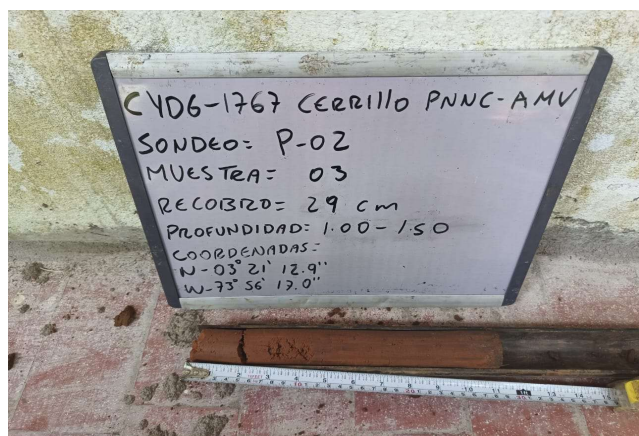 CYDG-1767 CERRIllO PNNC-AMV
SONDEO= P-02
MUESTRA= 03
RECOBRO= 29 cm
PROFUNDIDAD: 1.00-1.50
COORDENADAS=
N-03° 21' 12.9"
W-73° 56' 17.0"